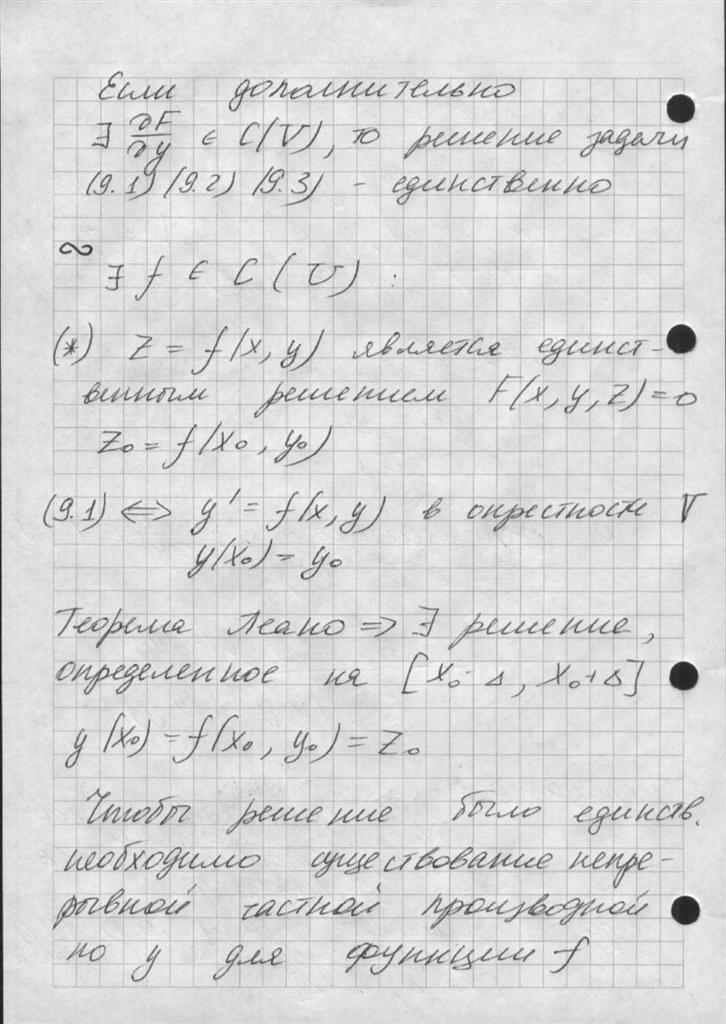 Если дополнительно
∃ ∂F/∂y ∈ C(V), то решение задачи
(9.1) (9.2) (9.3) - единственно
∃ f ∈ C(U) :
(*) z = f(x, y) является единст-
венным решением F(x, y, z) = 0
z₀ = f(x₀, y₀)
(9.1) ⇔ y' = f(x, y) в окрестности V
y(x₀) = y₀
Теорема Пеано ⇒ ∃ решение,
определенное на [x₀ - Δ, x₀ + Δ]
y(x₀) = f(x₀, y₀) = z₀
Чтобы решение было единств.
необходимо существование непре-
рывной частной производной
по y для функции f